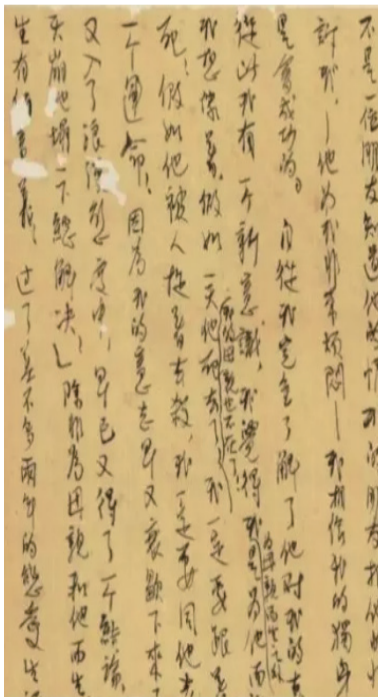 不是一個朋友知道他的
討我,—他為我非常煩悶—我相信我的獨身
是會成功的。 自從我完全了解了他對我的
從此我有一个新意識,我覺得我是為母親而生之外是為他而
我想像着,假如一天他死去了,我的母親也不在了,我一定要跟
死!假如他被人捉着去殺,我一定要同他去
一个運命! 因為我的意志早又衰歇下來了
又入了浪漫態度中,早已又得了一个結論
天崩地塌一下總解決!」除非為母親和他而生
生有何意義。 過了差不多兩年的戀愛生活